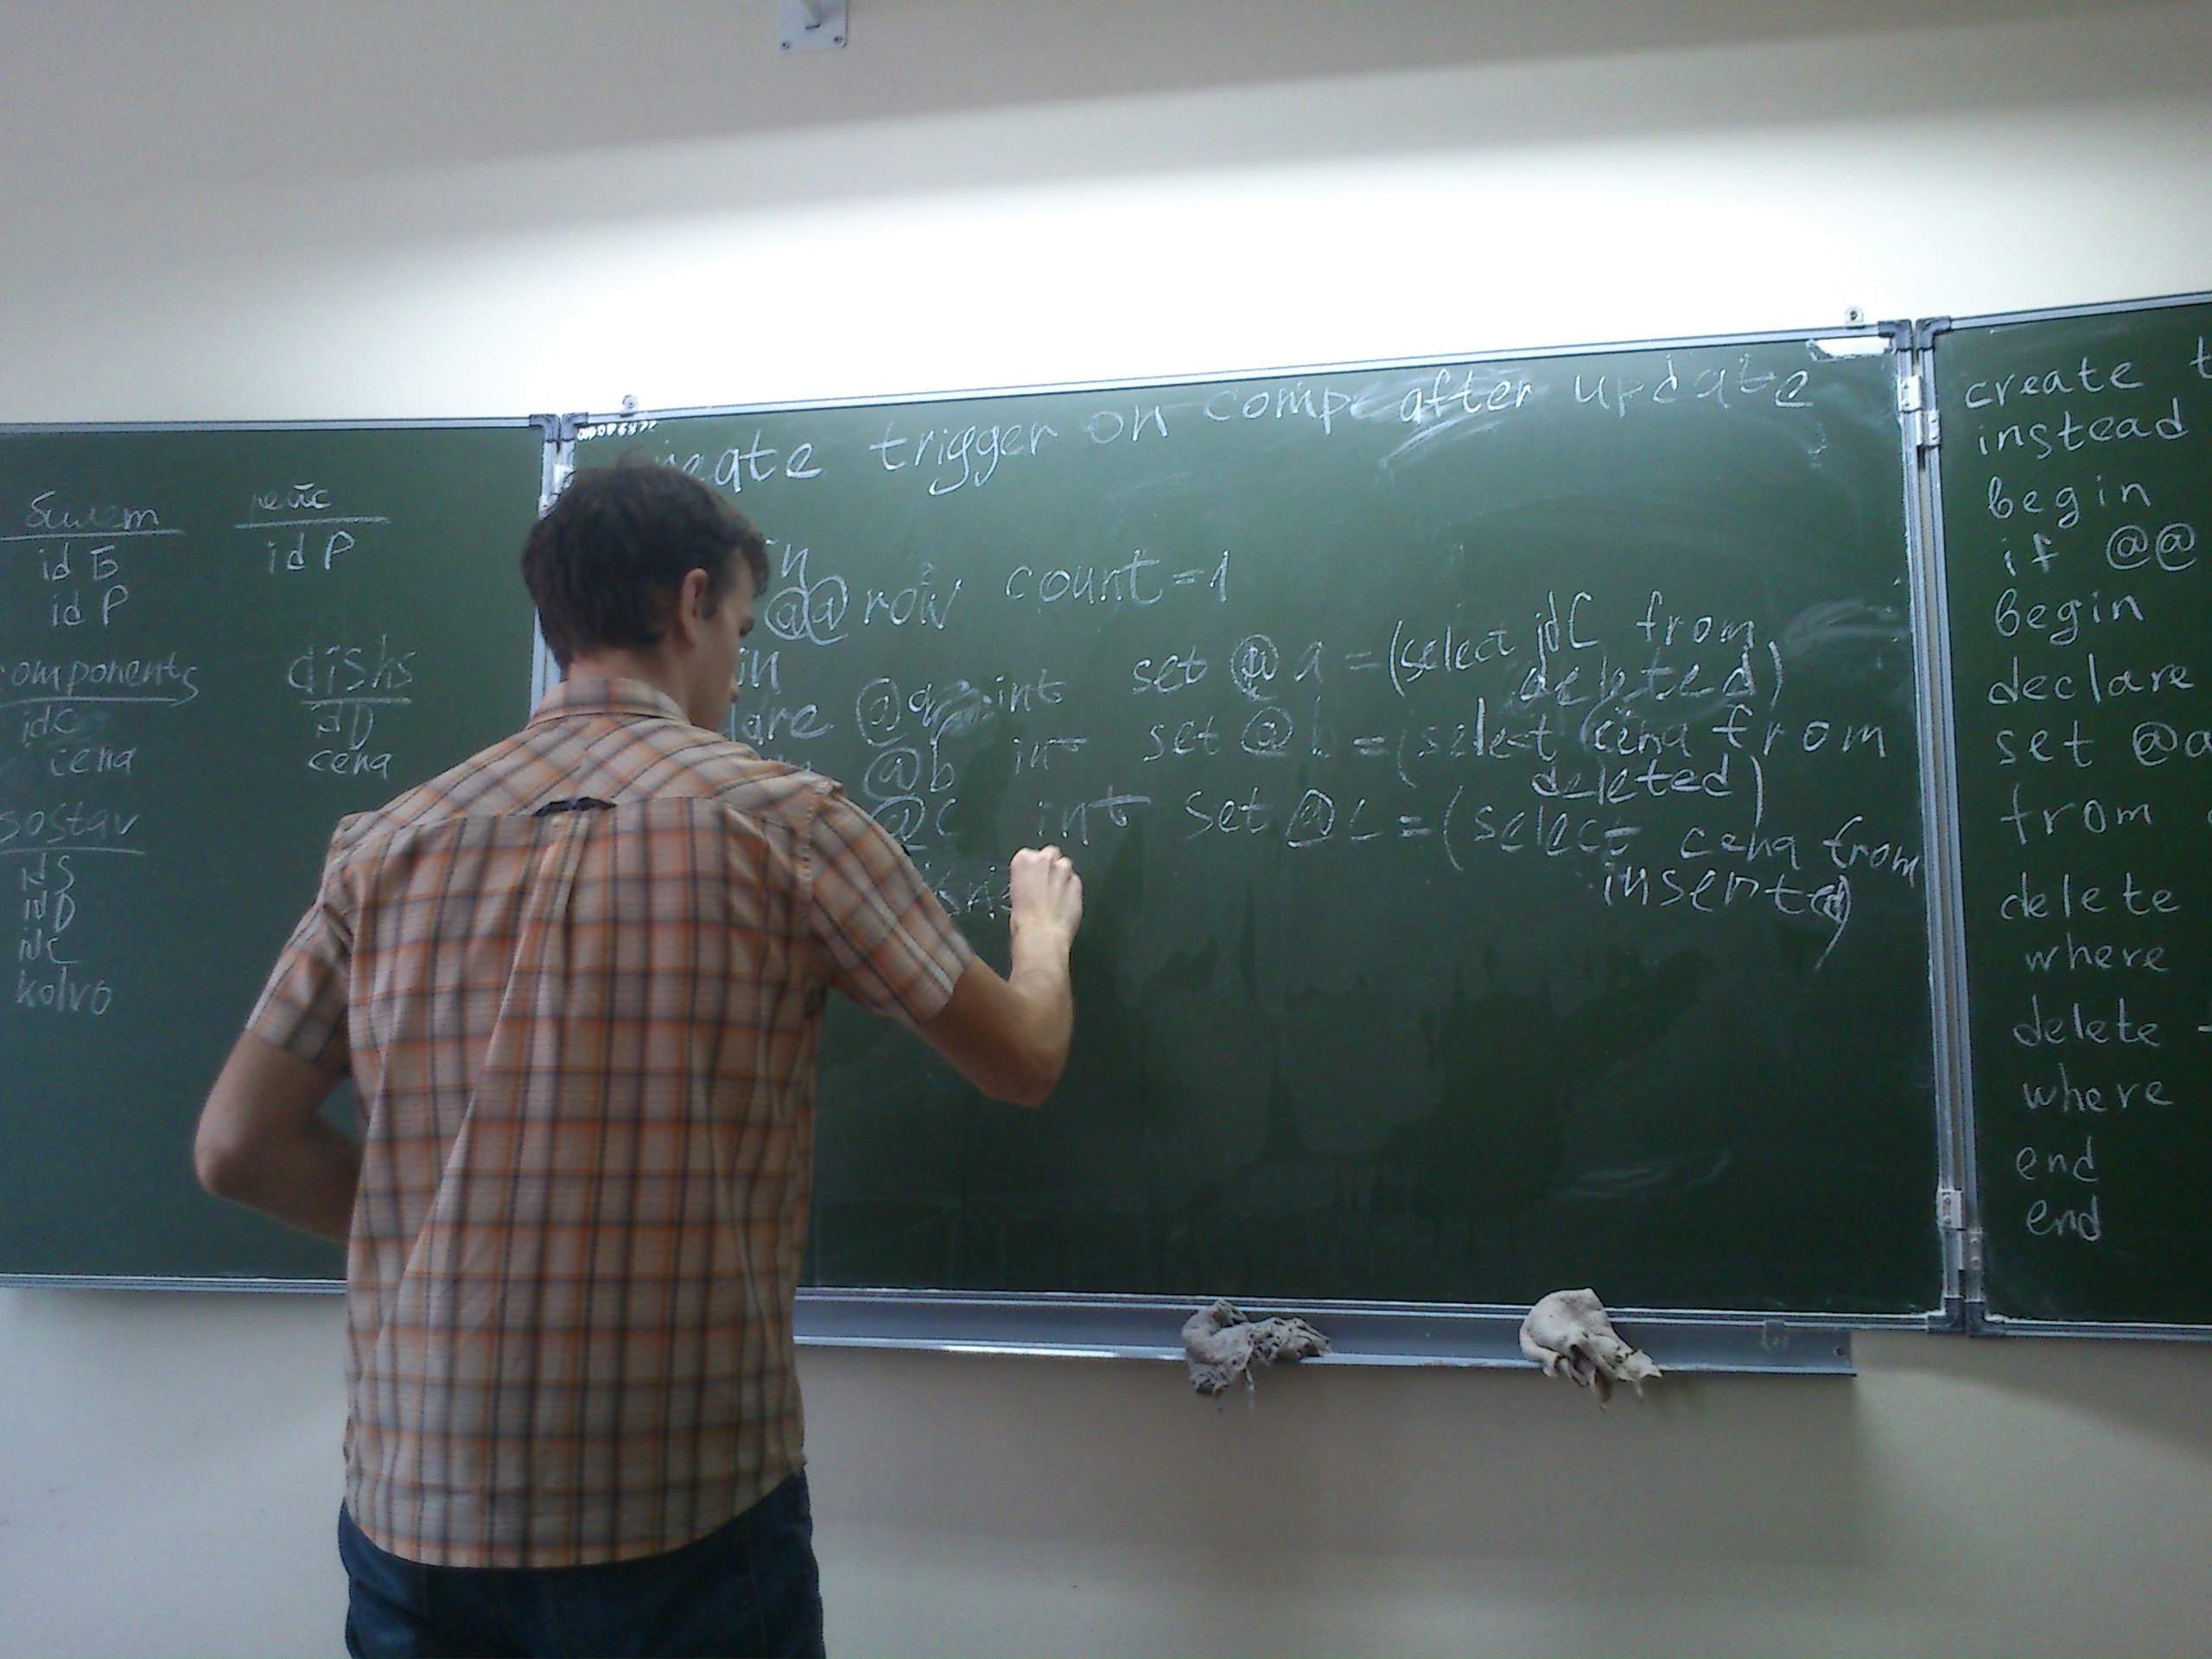 билет
id Б
id P
рейс
id P
components
idC
cena
dishs
iD
cena
sostav
idS
idD
idC
kolvo
create trigger on comp after update
in
@@row count=1
in
lare @a int set @a =(select idC from
deleted)
@b int set @b =(select cena from
deleted)
@c int set @c =(select cena from
inserted)
create t
instead
begin
if @@
begin
declare
set @a
from
delete
where
delete
where
end
end